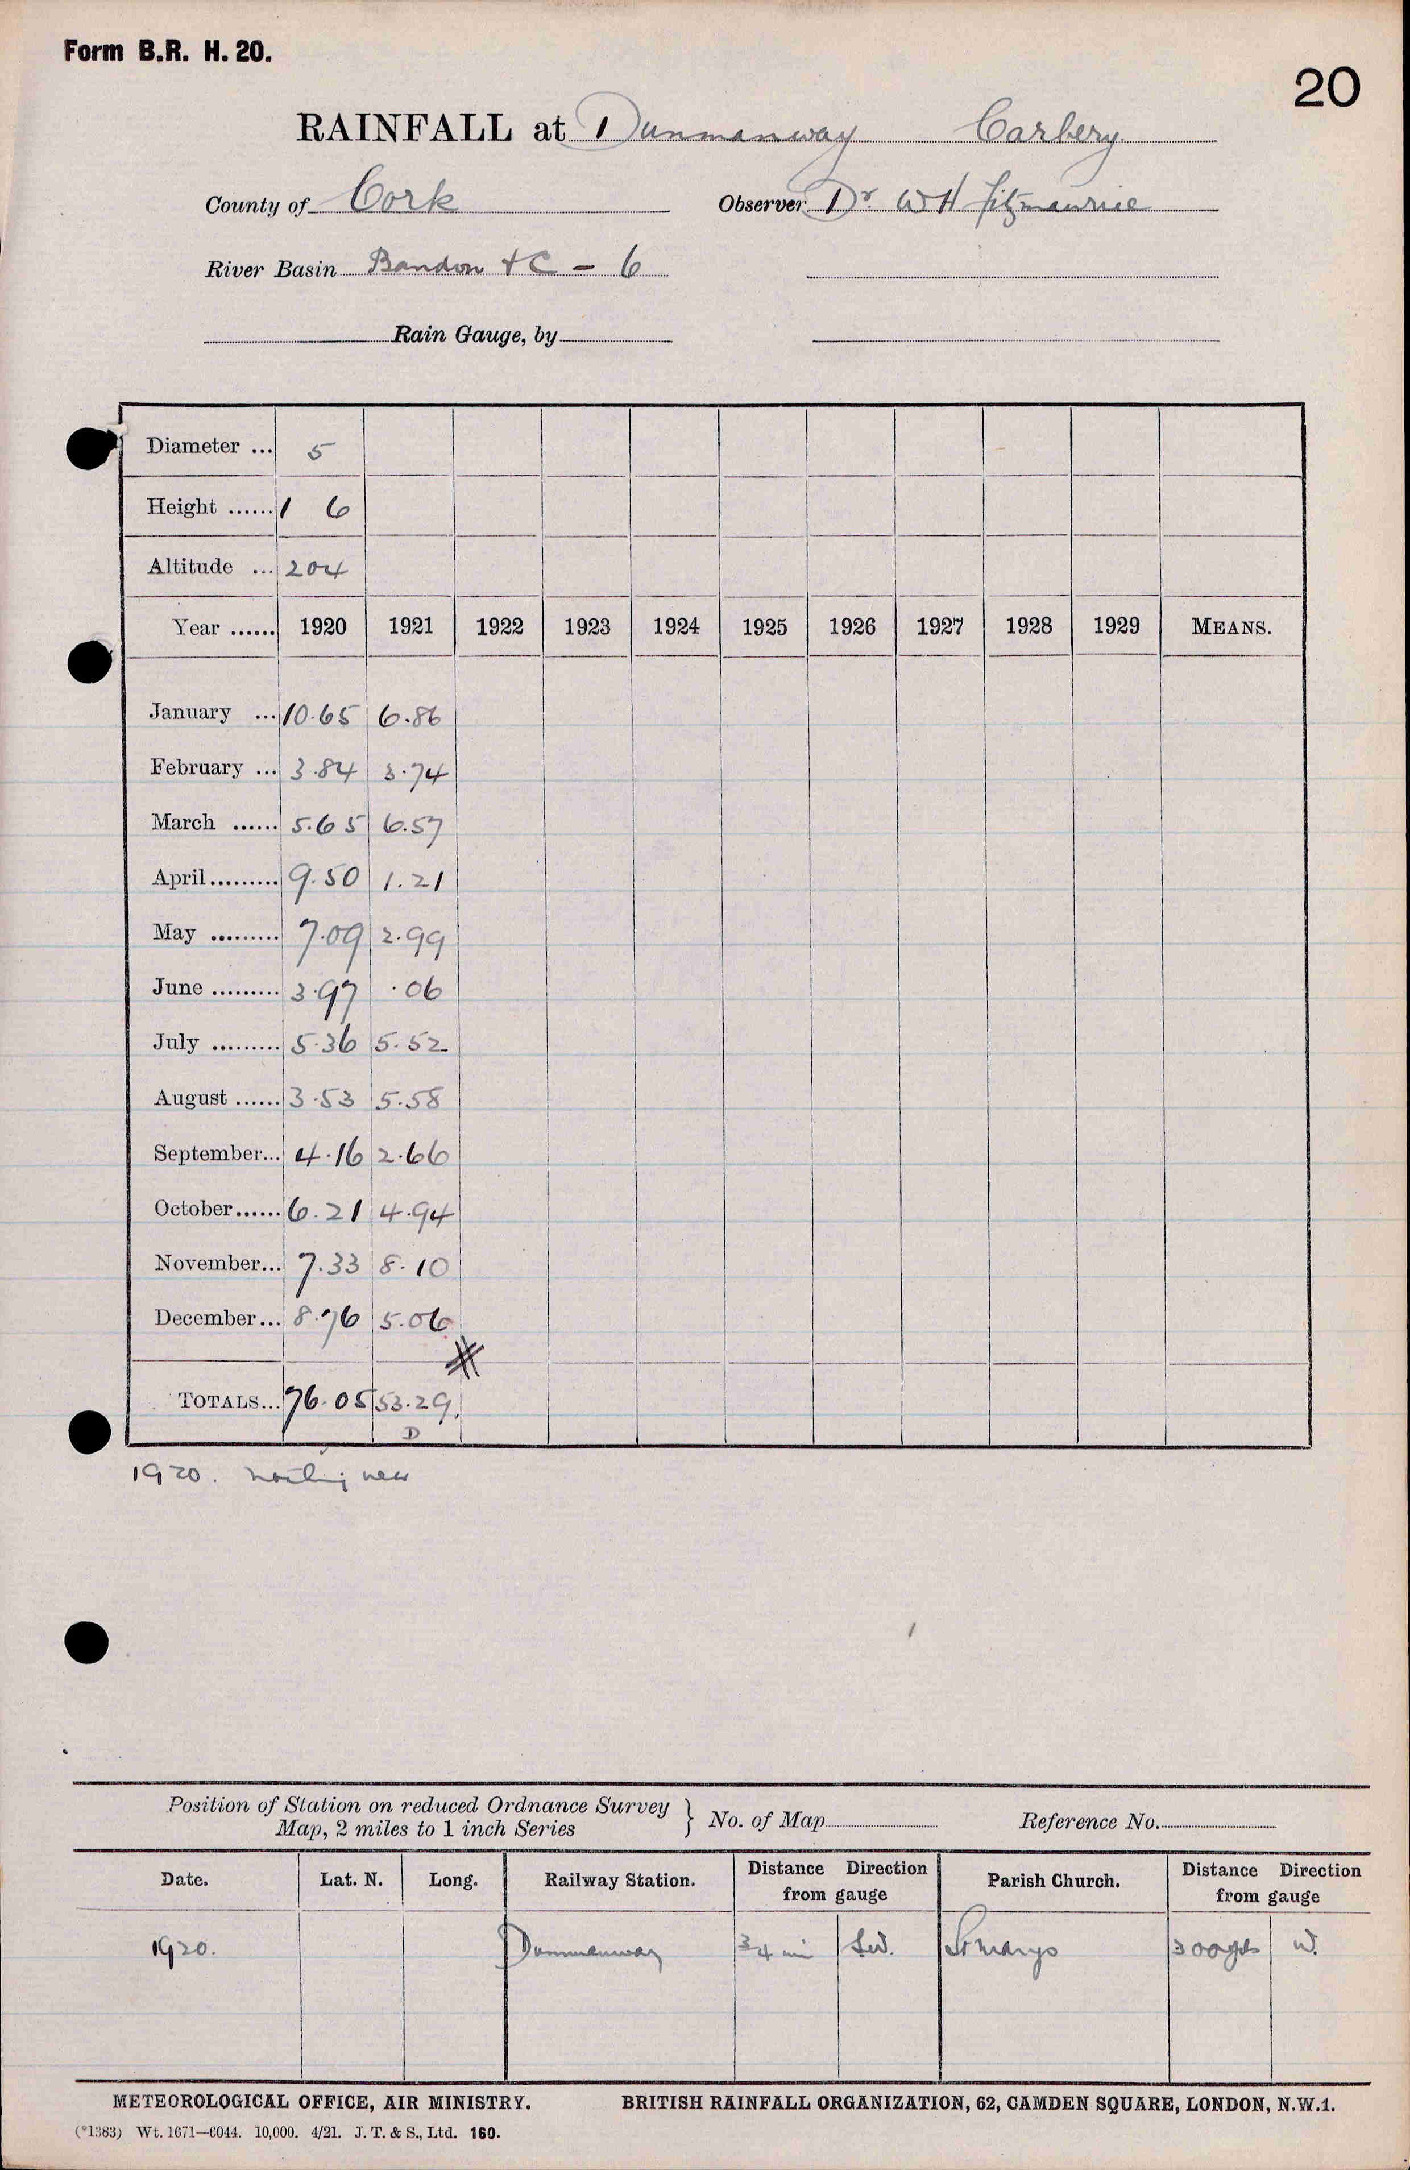 Form B.R. H. 20.
20
RAINFALL at Dunmanway Carbery
County of Cork Observer Dr. W H Fitzmaurice
River Basin Bandon + C - 6
Rain Gauge, by
Diameter ... 5
Height ...... 1 6
Altitude ... 204
Year ...... 1920 1921 1922 1923 1924 1925 1926 1927 1928 1929 MEANS.
January ... 10.65 6.86
February ... 3.84 3.74
March ...... 5.65 6.57
April......... 9.50 1.21
May ......... 7.09 2.99
June ......... 3.97 .06
July ......... 5.36 5.52
August ...... 3.53 5.58
September... 4.16 2.66
October...... 6.21 4.94
November... 7.33 8.10
December... 8.76 5.06
TOTALS... 76.05 53.29
D
1920.
Position of Station on reduced Ordnance Survey
Map, 2 miles to 1 inch Series } No. of Map Reference No.
Date. Lat. N. Long. Railway Station. Distance Direction from gauge Parish Church. Distance Direction from gauge
1920. Dunmanway 3/4 mi S.W. St Marys 300 yds W.
METEOROLOGICAL OFFICE, AIR MINISTRY. BRITISH RAINFALL ORGANIZATION, 62, CAMDEN SQUARE, LONDON, N.W.1.
(*1363) Wt. 1671—6044. 10,000. 4/21. J. T. & S., Ltd. 160.